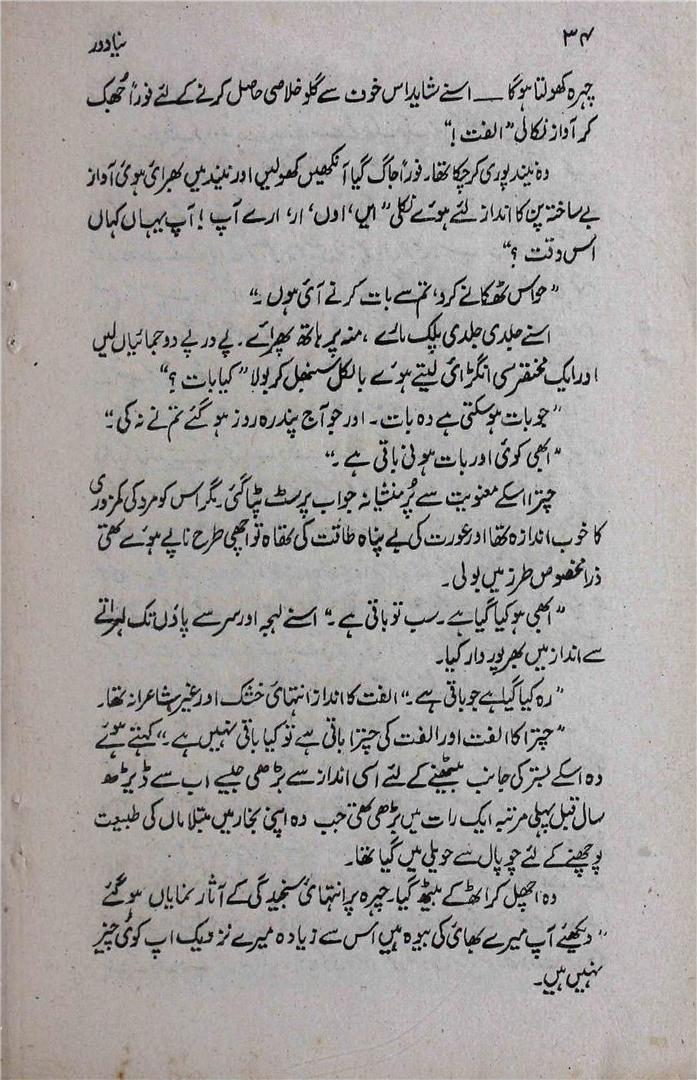 ۳۴ نیا دور
چہرہ کھولتا ہوگا — اسنے شاید اس خون سے گلوخلاصی حاصل کرنے کے لئے فوراً جُھک
کر آواز نکالی "الفت!"
وہ نیند پوری کر چکا تھا۔ فوراً جاگ گیا آنکھیں کھولیں اور نیند میں بھرائی ہوئی آواز
بے ساختہ پن کا انداز لئے ہوئے نکلی "ایں، اوں، ار، ارے آپ! آپ یہاں کہاں
اس وقت؟"
"حواس ٹھکانے کرو، تم سے بات کرنے آئی ہوں۔"
اسنے جلدی جلدی پلک مارے، منہ پر ہاتھ پھرائے۔ پے در پے دو جمائیاں لیں
اور ایک مختصر سی انگڑائی لیتے ہوئے بالکل سنبھل کر بولا "کیا بات؟"
"جو بات ہو سکتی ہے وہ بات۔ اور جو آج پندرہ روز ہو گئے تم نے نہ کی۔"
"ابھی کوئی اور بات ہونی باقی ہے۔"
چترا اسکے معنویت سے پُر منشیانہ جواب پر سٹ پٹا گئی۔ مگر اس کو مرد کی کمزوری
کا خوب اندازہ تھا اور عورت کی بے پناہ طاقت کی تھاہ تو اچھی طرح ناپے ہوئے تھی
ذرا مخصوص طرز میں بولی۔
"ابھی ہو کیا گیا ہے۔ سب تو باقی ہے۔" اسنے لہجہ اور سر سے پاؤں تک لہراتے
سے انداز میں بھرپور وار کیا۔
"رہ کیا گیا ہے جو باقی ہے۔" الفت کا انداز انتہائی خشک اور غیر شاعرانہ تھا۔
"چترا کا الفت اور الفت کی چترا باقی ہے تو کیا باقی نہیں ہے۔" کہتے ہوئے
وہ اسکے بستر کی جانب بیٹھنے کے لئے اسی انداز سے بڑھی جیسے اب سے ڈیڑھ
سال قبل پہلی مرتبہ ایک رات میں بڑھی تھی جب وہ اپنی بخار میں مبتلا ماں کی طبیعت
پوچھنے کے لئے چوپال سے حویلی میں گیا تھا۔
وہ اچھل کر اٹھ کے بیٹھ گیا۔ چہرہ پر انتہائی سنجیدگی کے آثار نمایاں ہو گئے
"دیکھئے آپ میرے بھائی کی بیوہ ہیں اس سے زیادہ میرے نزدیک اب کوئی چیز
نہیں ہیں۔